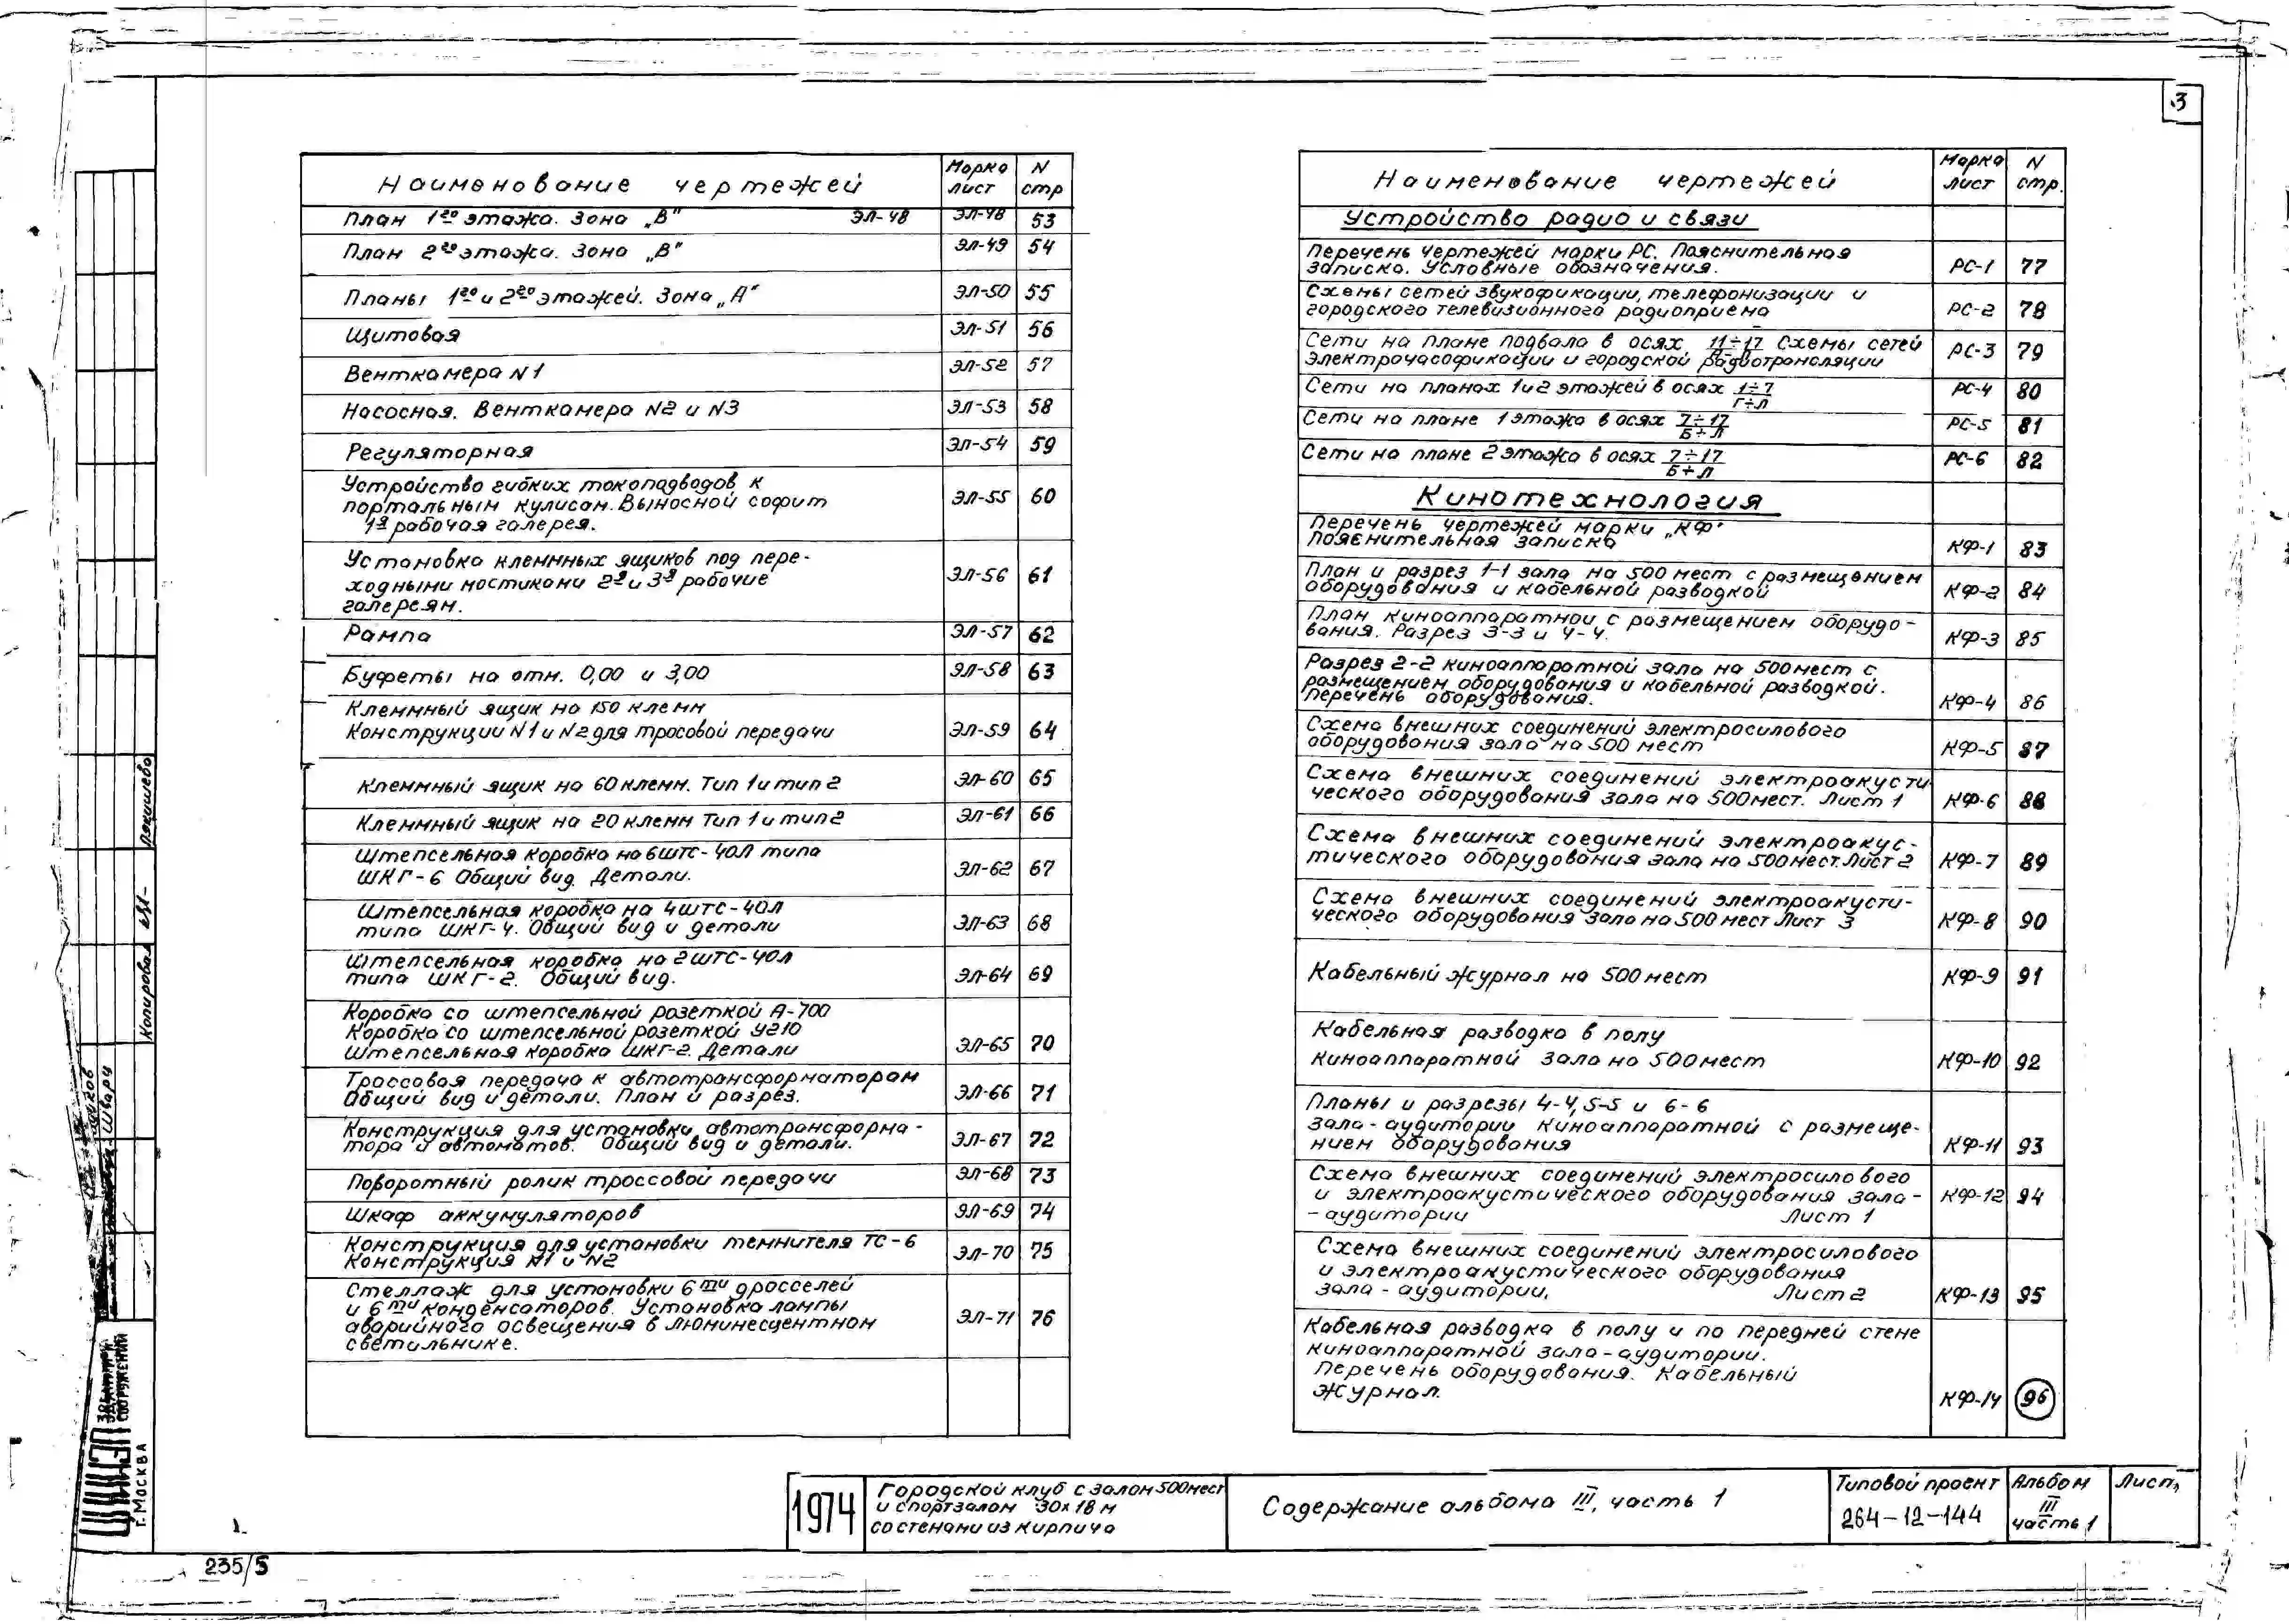 3
Наименование чертежей Марка лист N стр
План 1го этажа. Зона „В" ЭЛ-48 ЭЛ-48 53
План 2го этажа. Зона „В" ЭЛ-49 54
Планы 1го и 2го этажей. Зона „А" ЭЛ-50 55
Щитовая ЭЛ-51 56
Венткамера N1 ЭЛ-52 57
Насосная. Венткамера N2 и N3 ЭЛ-53 58
Регуляторная ЭЛ-54 59
Устройство гибких токоподводов к
портальным кулисам. Выносной софит ЭЛ-55 60
1я рабочая галерея.
Установка клеммных ящиков под пере-
ходными мостиками 2й и 3й рабочие ЭЛ-56 61
галереям.
Рампа ЭЛ-57 62
Буфеты на отм. 0,00 и 3,00 ЭЛ-58 63
Клеммный ящик на 150 клемм
Конструкции N1 и N2 для тросовой передачи ЭЛ-59 64
Клеммный ящик на 60 клемм. Тип 1 и тип 2 ЭЛ-60 65
Клеммный ящик на 20 клемм Тип 1 и тип 2 ЭЛ-61 66
Штепсельная коробка на 6 штс-40Л типа
ШКГ-6 Общий вид. Детали. ЭЛ-62 67
Штепсельная коробка на 4 штс-40Л
типа ШКГ-4. Общий вид и детали ЭЛ-63 68
Штепсельная коробка на 2 штс-40Л
типа ШКГ-2. Общий вид. ЭЛ-64 69
Коробка со штепсельной розеткой А-700
Коробка со штепсельной розеткой У210
Штепсельная коробка ШКГ-2. Детали ЭЛ-65 70
Троссовая передача к автотрансформаторам
Общий вид и детали. План и разрез. ЭЛ-66 71
Конструкция для установки автотрансформа-
тора и автоматов. Общий вид и детали. ЭЛ-67 72
Поворотный ролик троссовой передачи ЭЛ-68 73
Шкаф аккумуляторов ЭЛ-69 74
Конструкция для установки темнителя ТС-6
Конструкция N1 и N2 ЭЛ-70 75
Стеллаж для установки 6ти дросселей
и 6ти конденсаторов. Установка лампы
аварийного освещения в люминесцентном ЭЛ-71 76
светильнике.
Наименование чертежей Марка лист N стр.
Устройство радио и связи
Перечень чертежей марки РС. Пояснительная
записка. Условные обозначения. РС-1 77
Схемы сетей звукофикации, телефонизации и
городского телевизионного радиоприема РС-2 78
Сети на плане подвала в осях 11÷17 Схемы сетей
электрочасофикации и городской радиотрансляции РС-3 79
Сети на планах 1 и 2 этажей в осях 1÷7 РС-4 80
Г÷Л
Сети на плане 1 этажа в осях 7÷17 РС-5 81
Б÷Л
Сети на плане 2 этажа в осях 7÷17 РС-6 82
Б÷Л
Кинотехнология
Перечень чертежей марки „КФ"
Пояснительная записка КФ-1 83
План и разрез 1-1 зала на 500 мест с размещением
оборудования и кабельной разводкой КФ-2 84
План киноаппаратной с размещением оборудо-
вания. Разрез 3-3 и 4-4. КФ-3 85
Разрез 2-2 киноаппаратной зала на 500 мест с
размещением оборудования и кабельной разводкой.
Перечень оборудования. КФ-4 86
Схема внешних соединений электросилового
оборудования зала на 500 мест КФ-5 87
Схема внешних соединений электроакусти-
ческого оборудования зала на 500 мест. Лист 1 КФ-6 88
Схема внешних соединений электроакус-
тического оборудования зала на 500 мест. Лист 2 КФ-7 89
Схема внешних соединений электроакусти-
ческого оборудования зала на 500 мест Лист 3 КФ-8 90
Кабельный журнал на 500 мест КФ-9 91
Кабельная разводка в полу
киноаппаратной зала на 500 мест КФ-10 92
Планы и разрезы 4-4, 5-5 и 6-6
зала-аудитории киноаппаратной с размеще-
нием оборудования КФ-11 93
Схема внешних соединений электросилового
и электроакустического оборудования зала- КФ-12 94
-аудитории Лист 1
Схема внешних соединений электросилового
и электроакустического оборудования
зала-аудитории, Лист 2 КФ-13 95
Кабельная разводка в полу и по передней стене
киноаппаратной зала-аудитории.
Перечень оборудования. Кабельный
журнал. КФ-14 96
Копировал
г. Москва
1974
Городской клуб с залом 500 мест
и спортзалом 30х18 м
со стенами из кирпича
Содержание альбома III, часть 1
Типовой проект
264-12-144
Альбом
III
часть 1
Лист
235/5